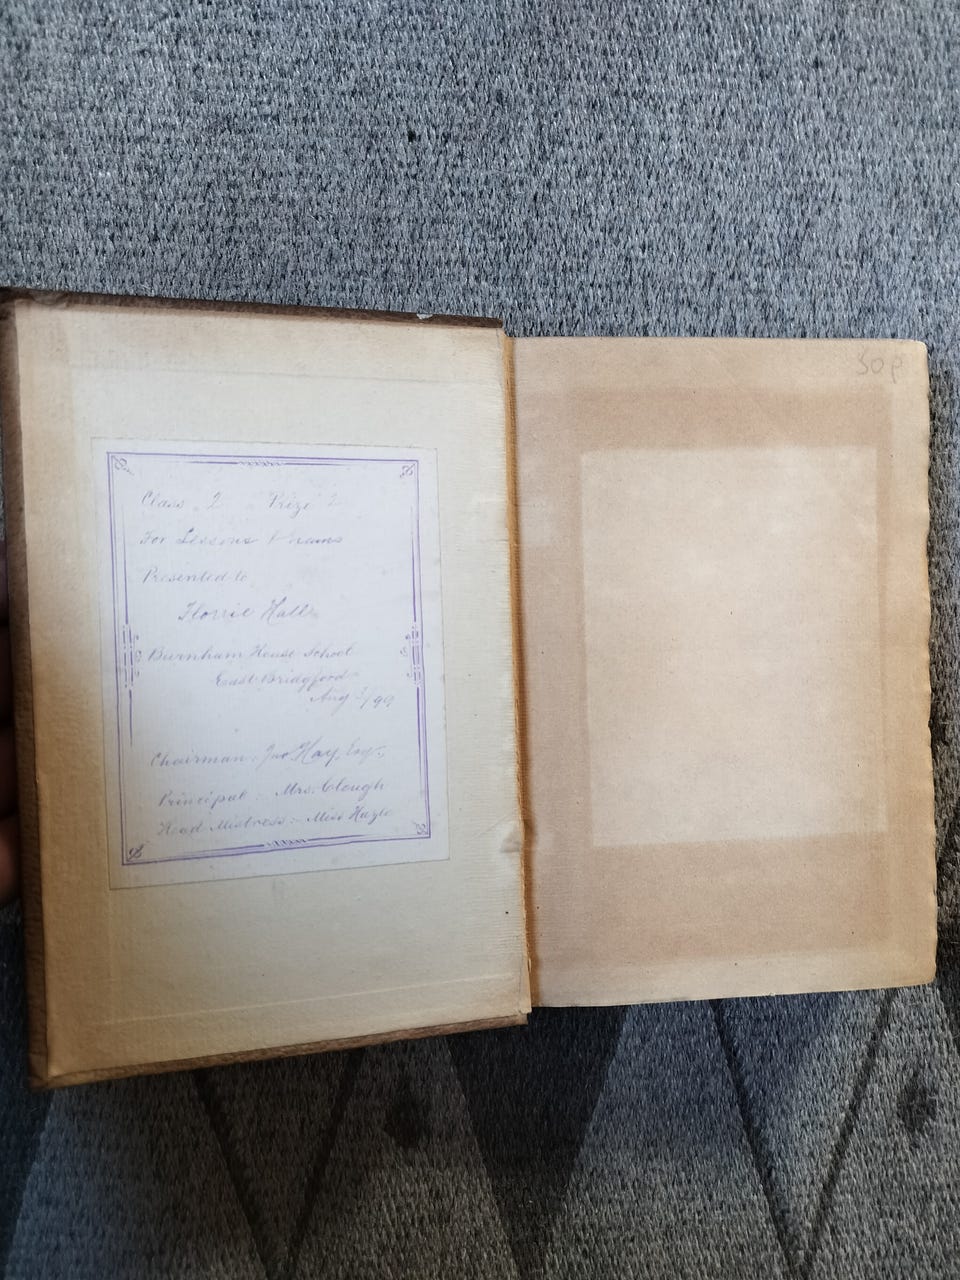 Class 2 Prize 2
For Lessons &
Presented to
Florrie Hall
Burnham House School
East Bridgford
Aug /99
Chairman Jno Hay, Esq.
Principal - Mrs. Clough
Head Mistress :- Miss
30p